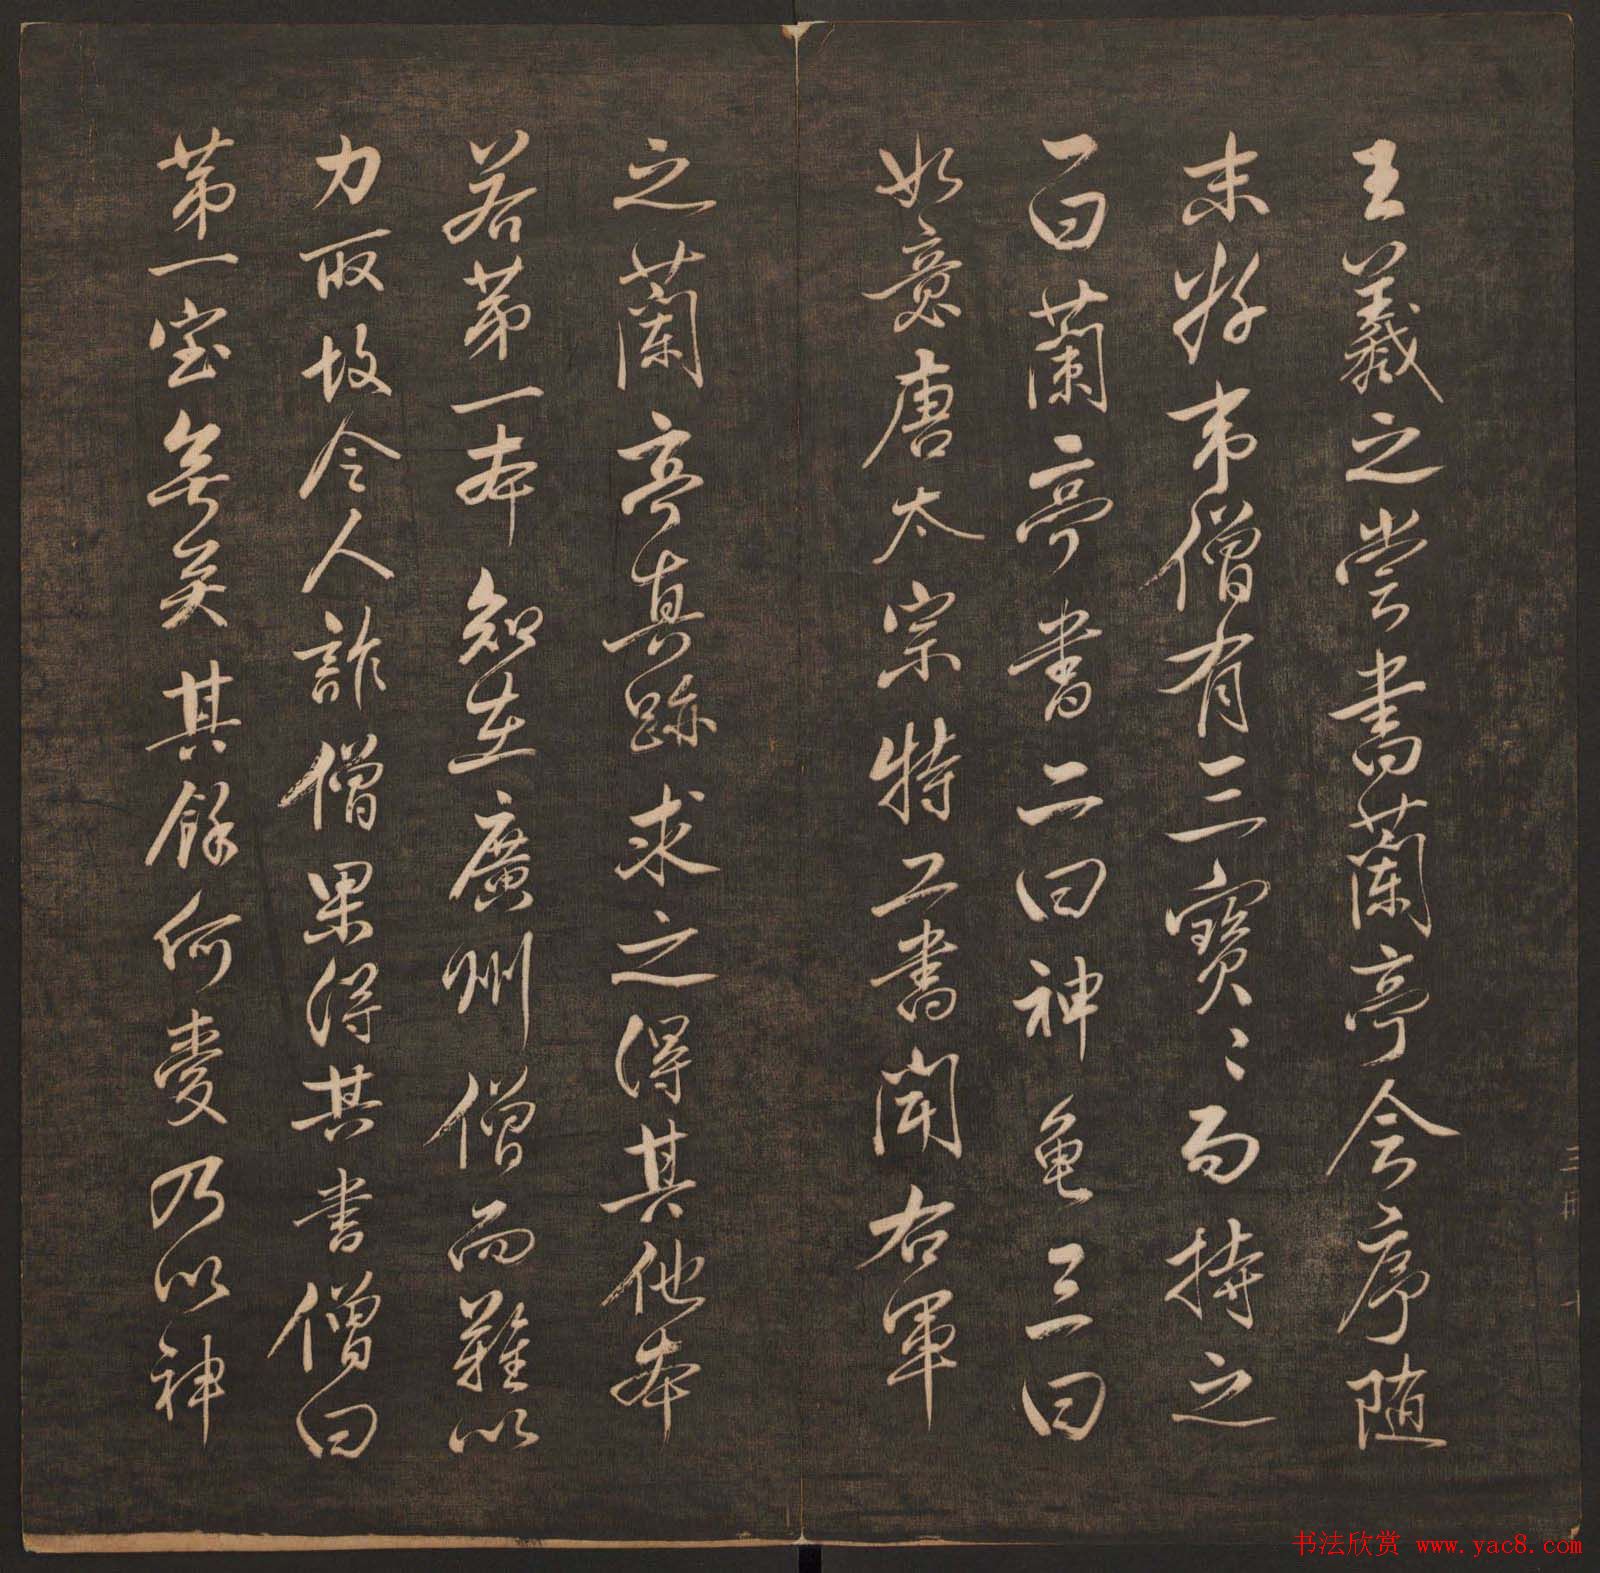 王羲之嘗書蘭亭会序随
末好事僧有三寶〻而持之
一曰蘭亭書二曰神龜三曰
如意唐太宗特工書聞右軍
之蘭亭真跡求之得其他本
若第一本知在廣州僧而難以
力取故令人詐僧果得其書僧曰
第一宝無矣其餘何愛乃以神
书法欣赏 www.yac8.com